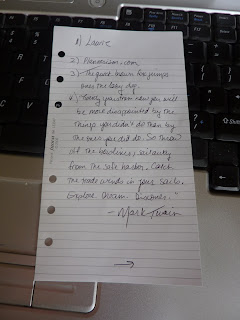 1) Laurie
2) .com
3) The quick brown fox jumps
over the lazy dog.
4) "Twenty years from now you will
be more disappointed by the
things you didn't do than by
the ones you did do. So throw
off the bowlines, sail away
from the safe harbor. Catch
the trade winds in your sails.
Explore. Dream. Discover."
- Mark Twain